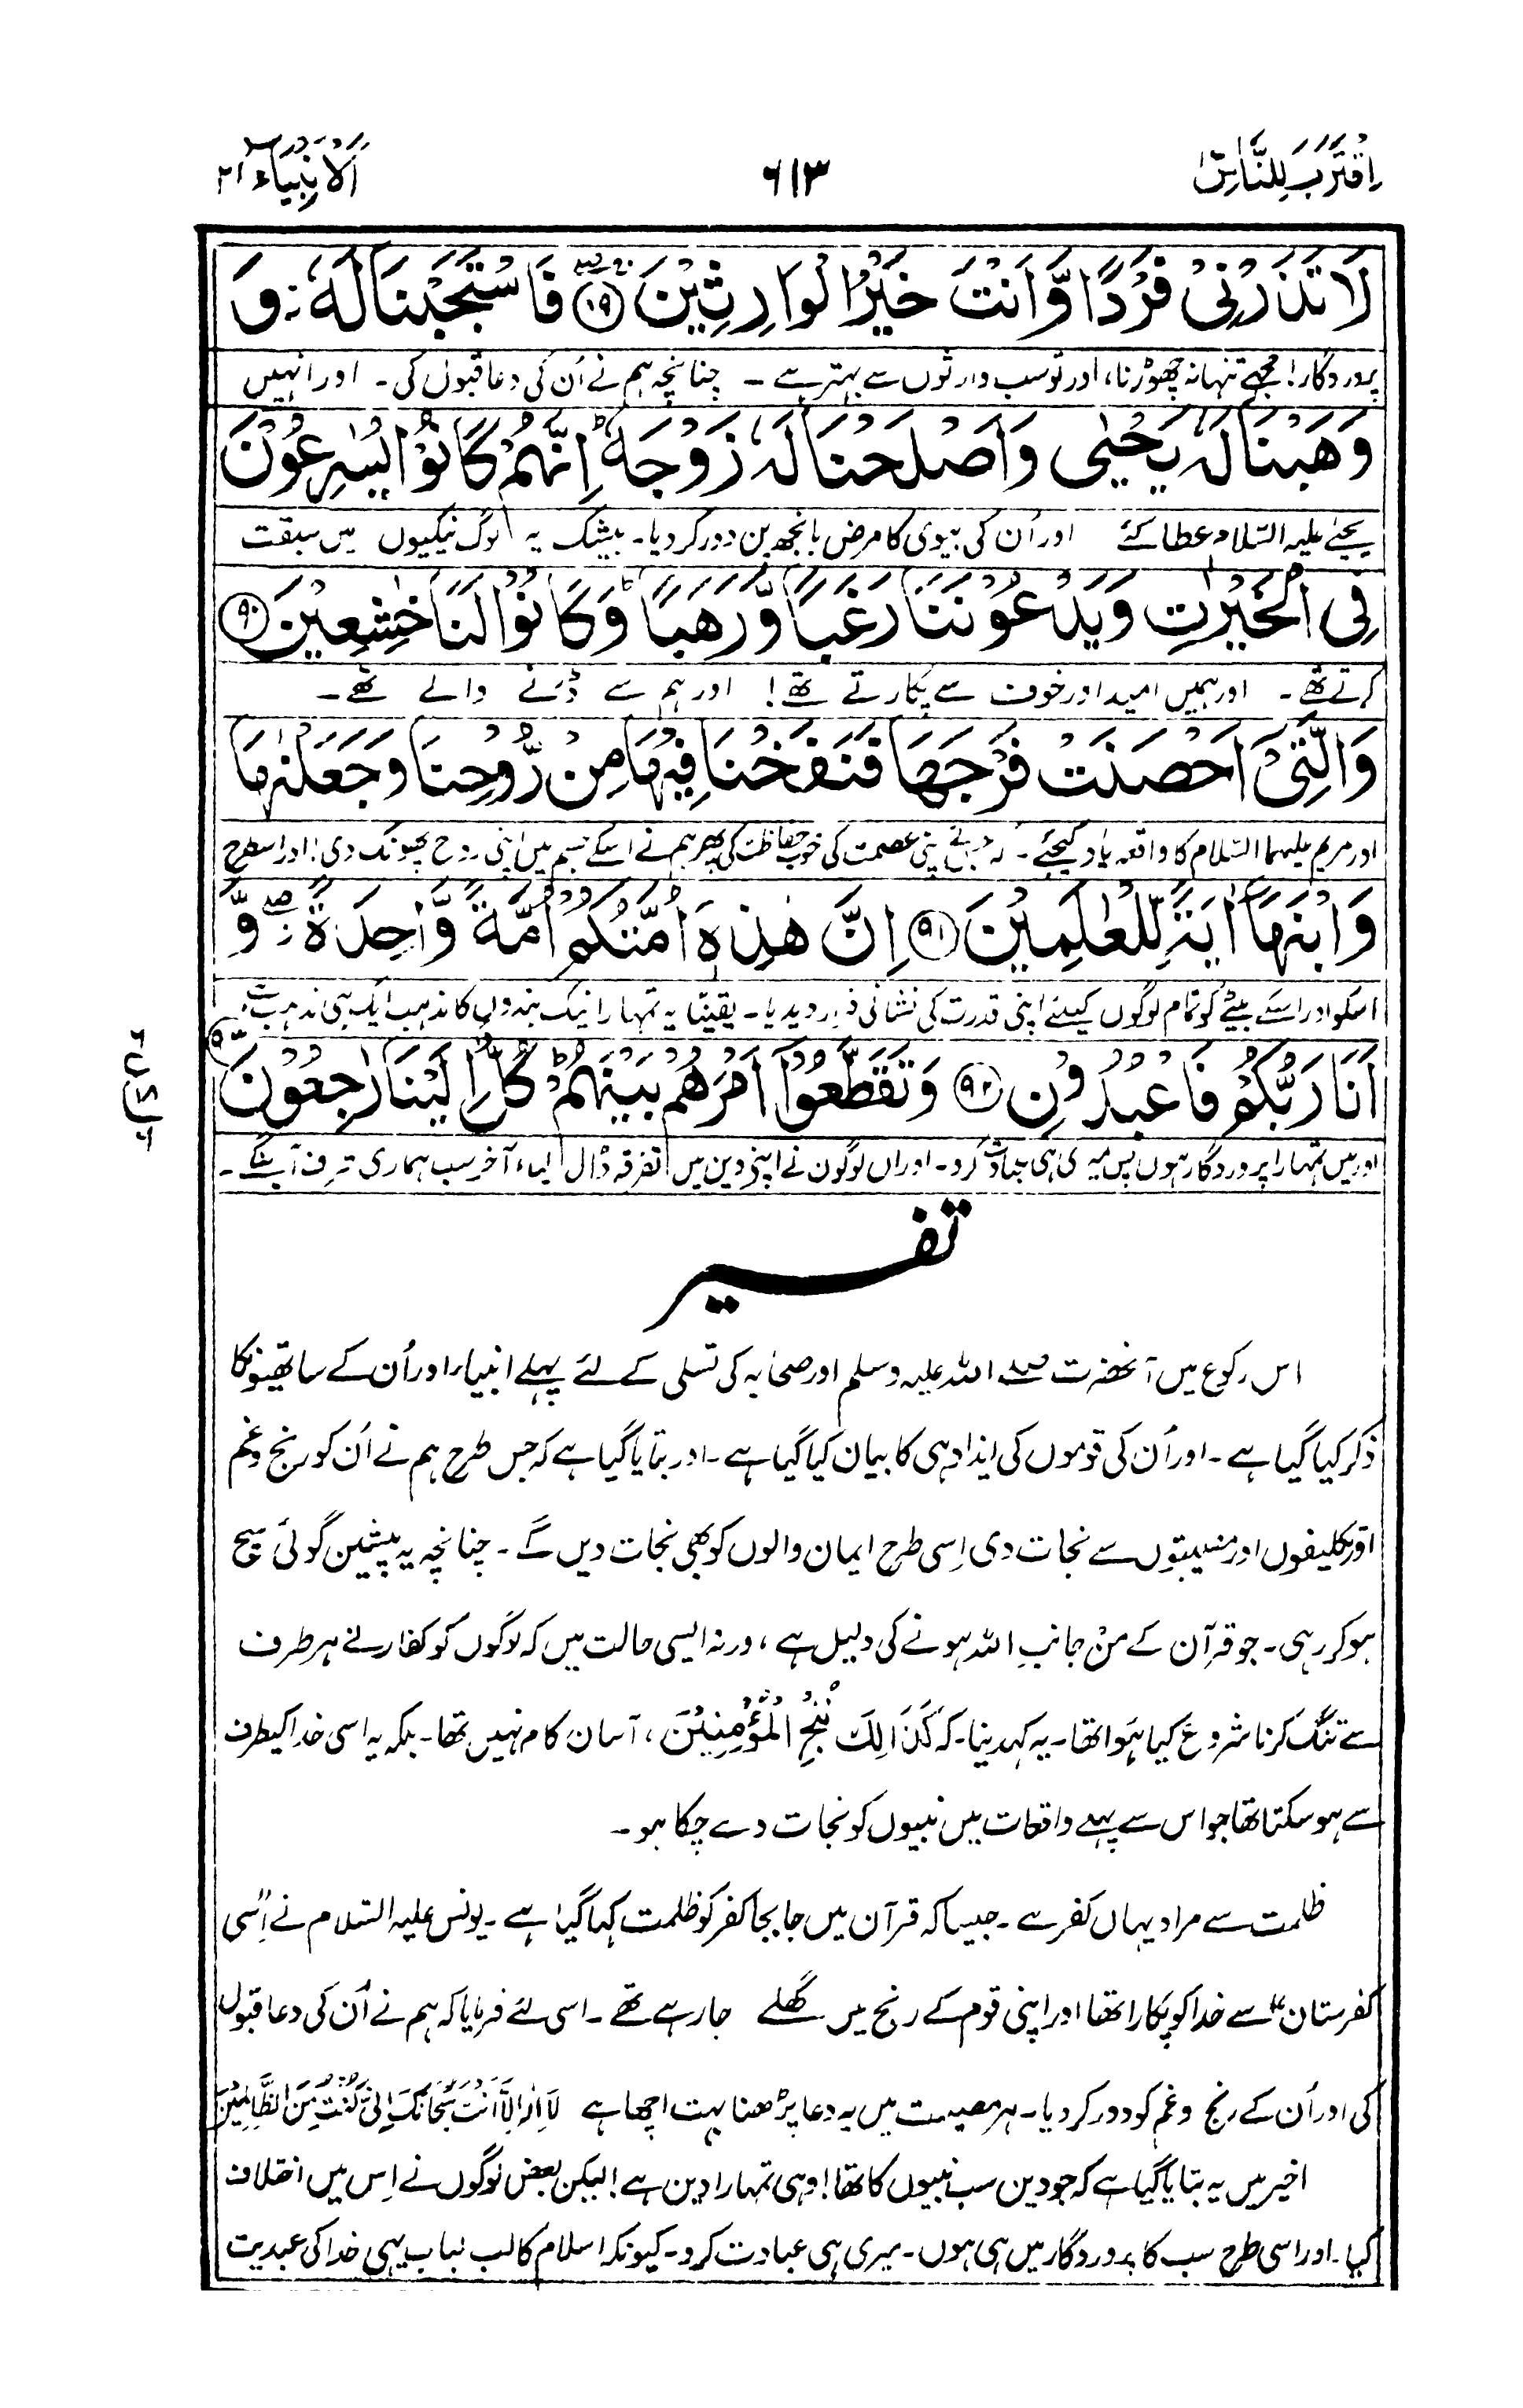 اِقْتَرَبَ لِلنَّاسِ ۶۱۳ اَلْاَنْبِيَاء ۲۱
لَا تَذَرْنِیْ فَرْدًا وَّاَنْتَ خَیْرُ الْوَارِثِیْنَ ۸۹ فَاسْتَجَبْنَا لَہٗ وَ
پروردگار! مجھے تنہا نہ چھوڑنا، اور تو سب وارثوں سے بہتر ہے ۔ چنانچہ ہم نے اُن کی دعا قبول کی ۔ اور انہیں
وَھَبْنَا لَہٗ یَحْیٰی وَاَصْلَحْنَا لَہٗ زَوْجَہٗ ؕ اِنَّہُمْ کَانُوْا یُسٰرِعُوْنَ
یحیٰے علیہ السّلام عطا کئے اور اُن کی بیوی کا مرض بانجھ پن دور کر دیا ۔ بیشک یہ لوگ نیکیوں میں سبقت
فِی الْخَیْرٰتِ وَیَدْعُوْنَنَا رَغَبًا وَّرَھَبًا ؕ وَکَانُوْا لَنَا خٰشِعِیْنَ ۹۰
کرتے تھے ۔ اور ہمیں امید اور خوف سے پکارتے تھے! اور ہم سے ڈرنے والے تھے ۔
وَالَّتِیْٓ اَحْصَنَتْ فَرْجَھَا فَنَفَخْنَا فِیْہَا مِنْ رُّوْحِنَا وَجَعَلْنٰہَا
اور مریم علیہما السّلام کا واقعہ یاد کیجئے ۔ کہ اپنی عصمت کی خوب حفاظت کی پھر ہم نے اسکے جسم میں اپنی روح پھونک دی! اور اسطرح
وَابْنَہَآ اٰیَةً لِّلْعٰلَمِیْنَ ۹۱ اِنَّ ھٰذِہٖٓ اُمَّتُکُمْ اُمَّةً وَّاحِدَةً ۖ وَّ
اسکو اور اسکے بیٹے کو تمام لوگوں کیلئے اپنی قدرت کی نشانی قرار دیدیا ۔ یقینًا یہ تمہارا نیک بندوں کا مذہب ایک ہی مذہب ہے،
اَنَا رَبُّکُمْ فَاعْبُدُوْنِ ۹۲ وَتَقَطَّعُوْٓا اَمْرَھُمْ بَیْنَہُمْ ؕ کُلٌّ اِلَیْنَا رٰجِعُوْنَ
اور میں تمہارا پروردگار ہوں پس میری ہی عبادت کرو ۔ اور ان لوگوں نے اپنے دین میں تفرقہ ڈال لیا، آخر سب ہماری طرف آئینگے ۔
تفسیر
اس رکوع میں آنحضرت صلے اللہ علیہ وسلم اور صحابہ کی تسلی کے لئے پہلے انبیاء اور اُن کے ساتھیونکا
ذکر کیا گیا ہے ۔ اور اُن کی قوموں کی ایذا دہی کا بیان کیا گیا ہے ۔ اور بتایا گیا ہے کہ جس طرح ہم نے اُن کو رنج و غم
اور تکلیفوں اور مصیبتوں سے نجات دی اِسی طرح ایمان والوں کو بھی نجات دیں گے ۔ چنانچہ یہ پیشین گوئی سچ
ہو کر رہی ۔ جو قرآن کے مِنْ جانبِ اللہ ہونے کی دلیل ہے، ورنہ ایسی حالت میں کہ لوگوں کو کفار نے ہر طرف
سے تنگ کرنا شروع کیا ہُوا تھا ۔ یہ کہدینا ۔ کہ کَذَالِكَ نُنْجِ الْمُؤْمِنِیْنَ، آسان کام نہیں تھا ۔ بلکہ یہ اسی خدا کیطرف
سے ہو سکتا تھا جو اس سے پہلے واقعات میں نبیوں کو نجات دے چکا ہو ۔
ظلمت سے مراد یہاں کفر ہے ۔ جیسا کہ قرآن میں جا بجا کفر کو ظلمت کہا گیا ہے ۔ یونس علیہ السّلام نے "اِسی
کفرستان" سے خدا کو پکارا تھا اور اپنی قوم کے رنج میں گھلے جا رہے تھے ۔ اسی لئے فرمایا کہ ہم نے اُن کی دعا قبول
کی اور اُن کے رنج و غم کو دور کر دیا ۔ ہر مصیبت میں یہ دعا پڑھنا بہت اچھا ہے لَا اِلٰہَ اِلَّا اَنْتَ سُبْحَانَكَ اِنِّیْ کُنْتُ مِنَ الظَّالِمِیْنَ
اخیر میں یہ بتایا گیا ہے کہ جو دین سب نبیوں کا تھا! وہی تمہارا دین ہے! لیکن بعض لوگوں نے اِس میں اختلاف
کیا ۔ اور اسی طرح سب کا پروردگار میں ہی ہوں ۔ میری ہی عبادت کرو ۔ کیونکہ اسلام کا لب لباب یہی خدا کی عبدیت